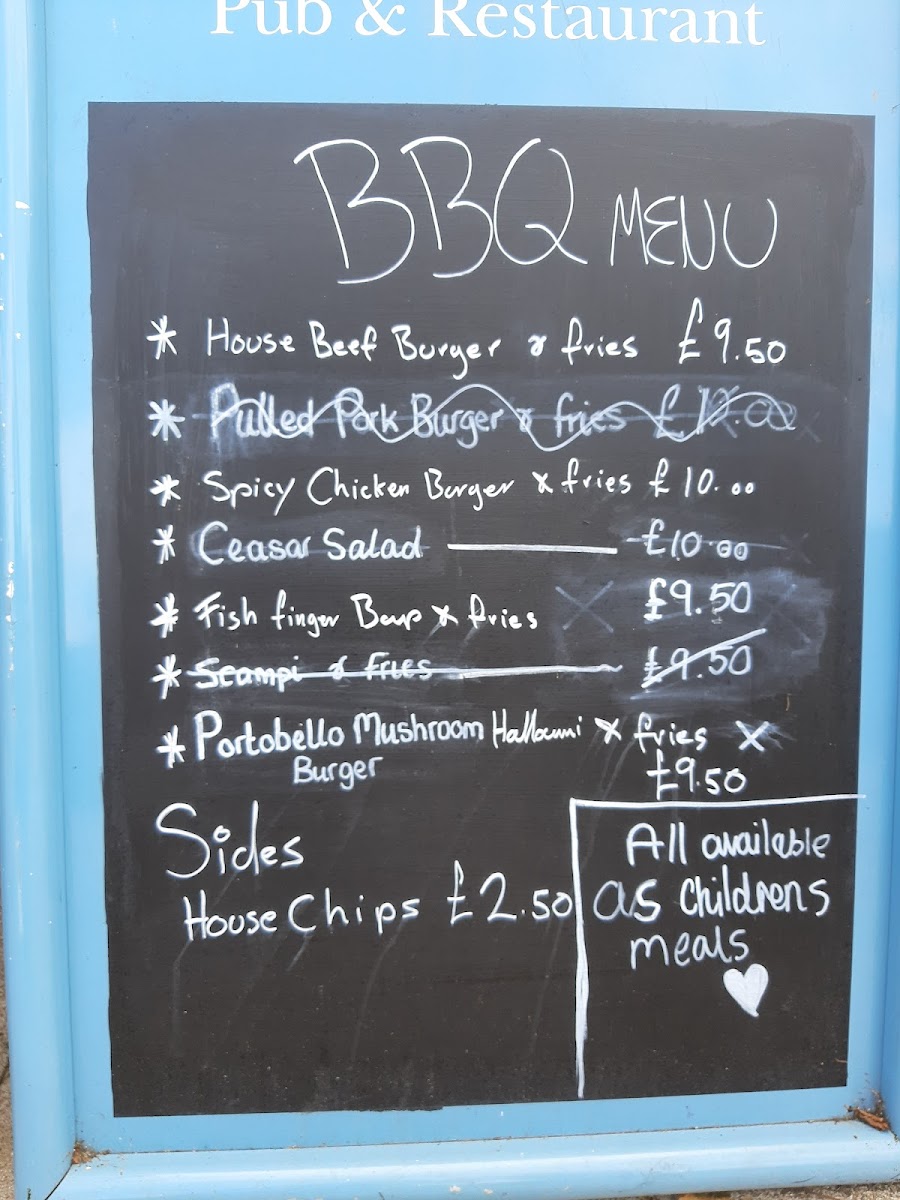 Pub & Restaurant
BBQ MENU
* House Beef Burger & fries £9.50
* Pulled Pork Burger & fries £12.00
* Spicy Chicken Burger & fries £10.00
* Ceasar Salad £10.00
* Fish finger Bap & fries £9.50
* Scampi & Fries £9.50
* Portobello Mushroom Halloumi & fries
Burger £9.50
Sides
House Chips £2.50
All available
as childrens
meals